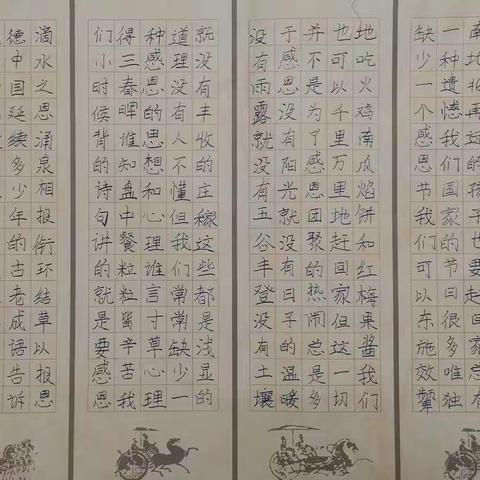 一种遗憾我们的国家的节日很多唯独
缺少一个感恩节我们可以东施效颦
地吃火鸡南瓜焰饼和红梅果酱我们
也可以千里万里地赶回家但这一切
并不是为了感恩团聚的热闹总是多
于感恩没有阳光就没有日子的温暖
没有雨露就没有五谷丰登没有土壤
就没有丰收的庄稼这些都是浅显的
道理没有人不懂但我们常常缺少一
种感恩的思想和心理谁言寸草心理
得三春晖谁知盘中餐粒粒皆辛苦我
们小时候背的诗句讲的就是要感恩
滴水之恩涌泉相报衔环结草以报恩
德中国延续多少年的古老成语告诉